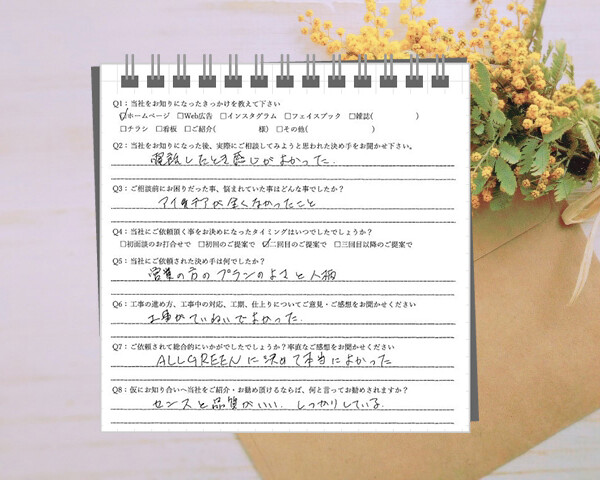 Q1：当社をお知りになったきっかけを教えて下さい
☑ホームページ □Web広告 □インスタグラム □フェイスブック □雑誌( )
□チラシ □看板 □ご紹介( 様) □その他( )
Q2：当社をお知りになった後、実際にご相談してみようと思われた決め手をお聞かせ下さい。
電話したとき感じがよかった.
Q3：ご相談前にお困りだった事、悩まれていた事はどんな事でしたか？
アイデアが全くなかったこと
Q4：当社にご依頼頂く事をお決めになったタイミングはいつでしたでしょうか？
□初面談のお打合せで □初回のご提案で ☑二回目のご提案で □三回目以降のご提案で
Q5：当社にご依頼された決め手は何でしたか？
営業の方のプランのよさと人柄
Q6：工事の進め方、工事中の対応、工期、仕上りについてご意見・ご感想をお聞かせください
工事がていねいでよかった.
Q7：ご依頼されて総合的にいかがでしたでしょうか？率直なご感想をお聞かせください
ALLGREENに決めて本当によかった
Q8：仮にお知り合いへ当社をご紹介・お勧め頂けるならば、何と言ってお勧めされますか？
センスと品質がいい. しっかりしている.